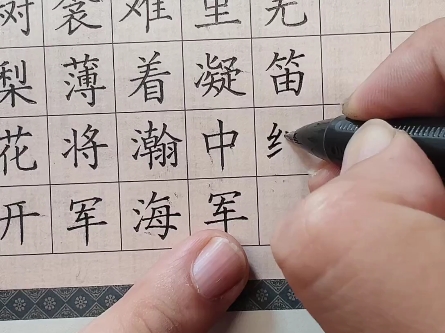 羌笛
里凝中军
难着瀚海
衾薄将军
树梨花开